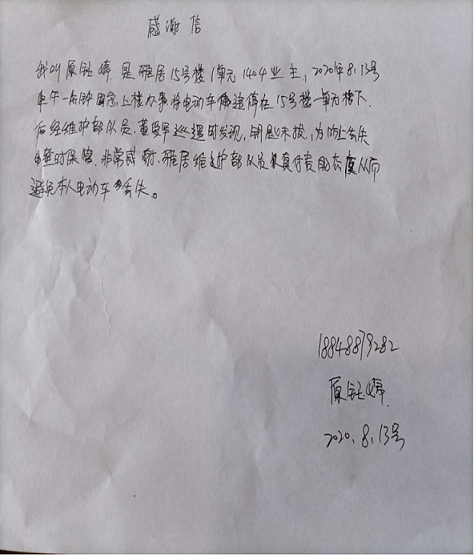 感谢信
我叫原钰婷 是雅居15号楼1单元1404业主,2020年8.13号
上午一点钟回家上楼办事将电动车停放在15号楼一单元楼下.
后经维护部队员.董 巡逻时发现,钥匙未拔,为防止丢失
暂时保管.非常感谢.雅居维护部队员认真付责的态度从而
避免本人电动车丢失。
18848879282
原钰婷
2020.8.13号